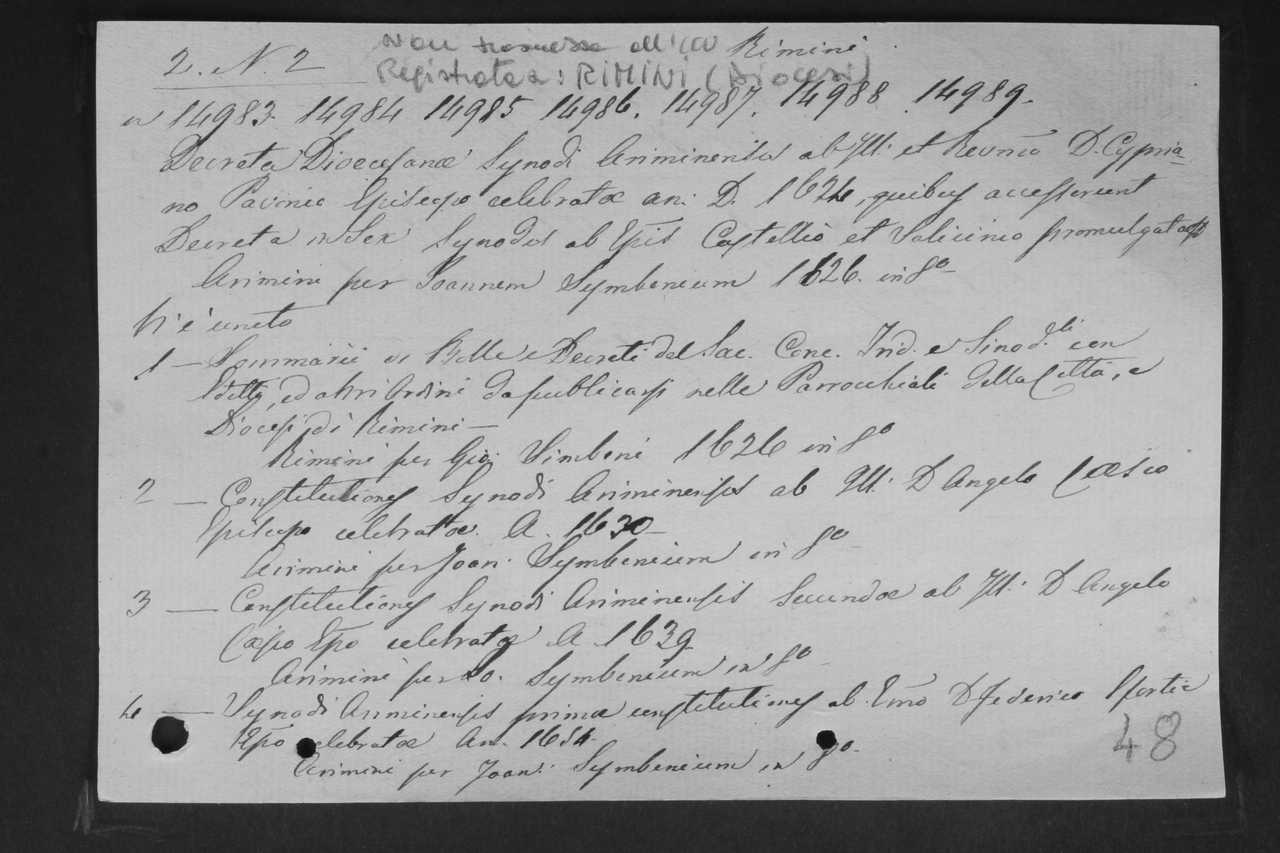 Non trasmessa all'ICCU Rimini
2. N. 2
Registrata a: RIMINI (Diocesi)
14983. 14984 14985 14986. 14987. 14988 14989.
Decreta Diœcesanæ Synodi Ariminensis ab Ill: et Revmo D. Cypria-
no Pavonio Episcopo celebratæ an: D. 1624, quibus accesserunt
Decreta in Sex Synodis ab Epis Castellio et Salicinio promulgata
Arimini per Joannem Symbenium 1626. in 8º
Vi è unito
1 — Sommarii di Bolle e Decreti del Sac. Conc. Trid. e Sinod.li con
Editti, ed altri Ordini da publicarsi nelle Parrocchiali della Città, e
Diocesi di Rimini —
Rimini per Gio: Simbeni 1626 in 8º
2 — Constitutiones Synodi Ariminensis ab Ill: D Angelo Cæsio
Episcopo celebratæ. A. 1630 —
Arimini per Joan: Symbenium in 8º
3 — Constitutiones Synodi Ariminensis Secundæ ab Ill: D Angelo
Cæsio Epo celebratæ A 1639
Arimini per Jo. Symbenium in 8º
4 — Synodi Ariminensis primæ constitutiones ab Emo D Federico Sfortia
Epo celebratæ An. 1654
Arimini per Joan: Symbenium in 8º.
48